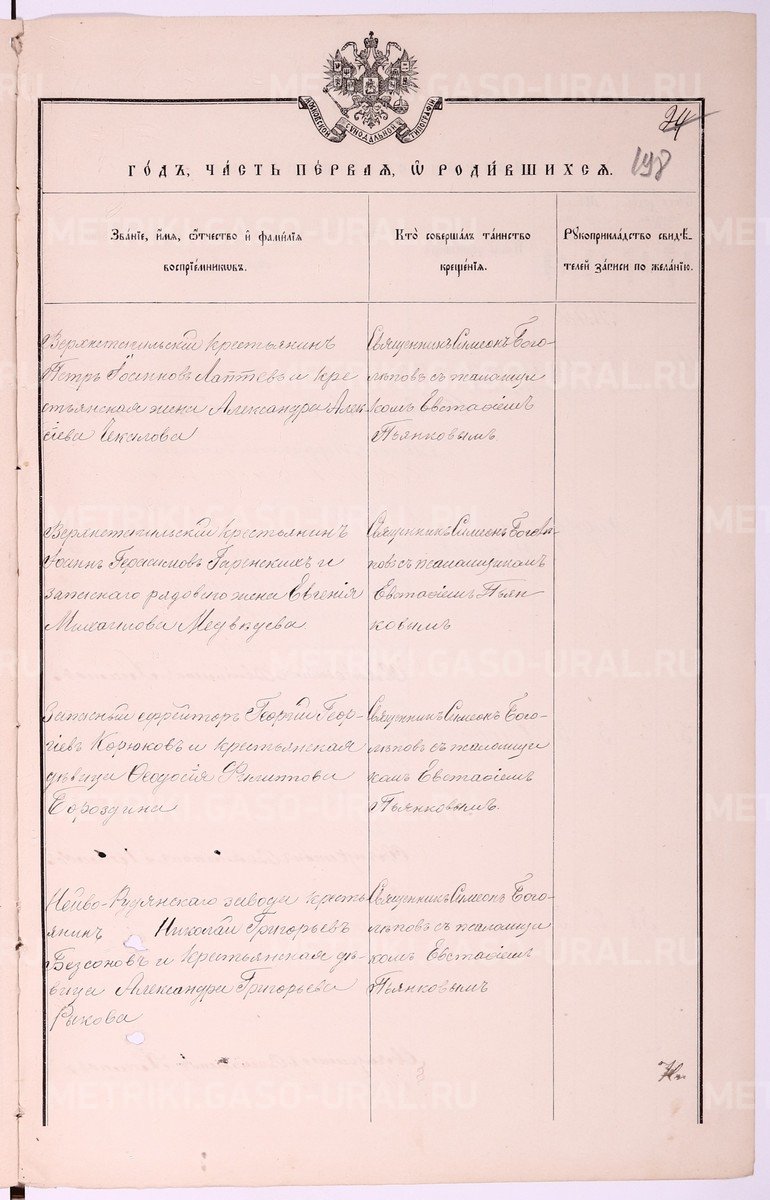 МОСКОВСКОЙ СѴНОДАЛЬНОЙ ТИПОГРАФІИ
24
198
ГО́ДЪ, ЧА́СТЬ ПЕ́РВАЯ, Ѽ РОДИ́ВШИХСЯ.
Зва́ніе, и҆́мя, ѻ҆́тчество и҆ фами́лїя
воспріе́мниковъ.
Кто̀ соверша́лъ та́инство
креще́нїя.
Рꙋкоприкла́дство свидѣ́-
телей за́писи по жела́нїю.
Верхнетагильскій крестьянинъ
Петръ Іоанновъ Лаптевъ и кре
стьянская жена Александра Алек
сіева Чекалова
Священникъ Симеонъ Бого-
лѣповъ съ псаломщи
комъ Евстафіемъ
Пьянковымъ
Верхнетагильскій крестьянинъ
Іоаннъ Герасимовъ Гаренскихъ и
запаснаго рядового жена Евгенія
Михаилова Медвѣдева
Священникъ Симеонъ Боголѣ-
повъ съ псаломщикомъ
Евстафіемъ Пьян
ковымъ
Запасный ефрейторъ Георгій Геор-
гіевъ Корюковъ и крестьянская
дѣвица Ѳеодосія Филиппова
Бороздина
Священникъ Симеонъ Бого-
лѣповъ съ псаломщи
комъ Евстафіемъ
Пьянковымъ.
Нейво-Рудянскаго завода кресть
янинъ Николай Григорьевъ
Безсоновъ и крестьянская дѣ-
вица Александра Григорьева
Рыкова
Священникъ Симеонъ Бого-
лѣповъ съ псаломщи
комъ Евстафіемъ
Пьянковымъ
METRIKI.GASO-URAL.RU